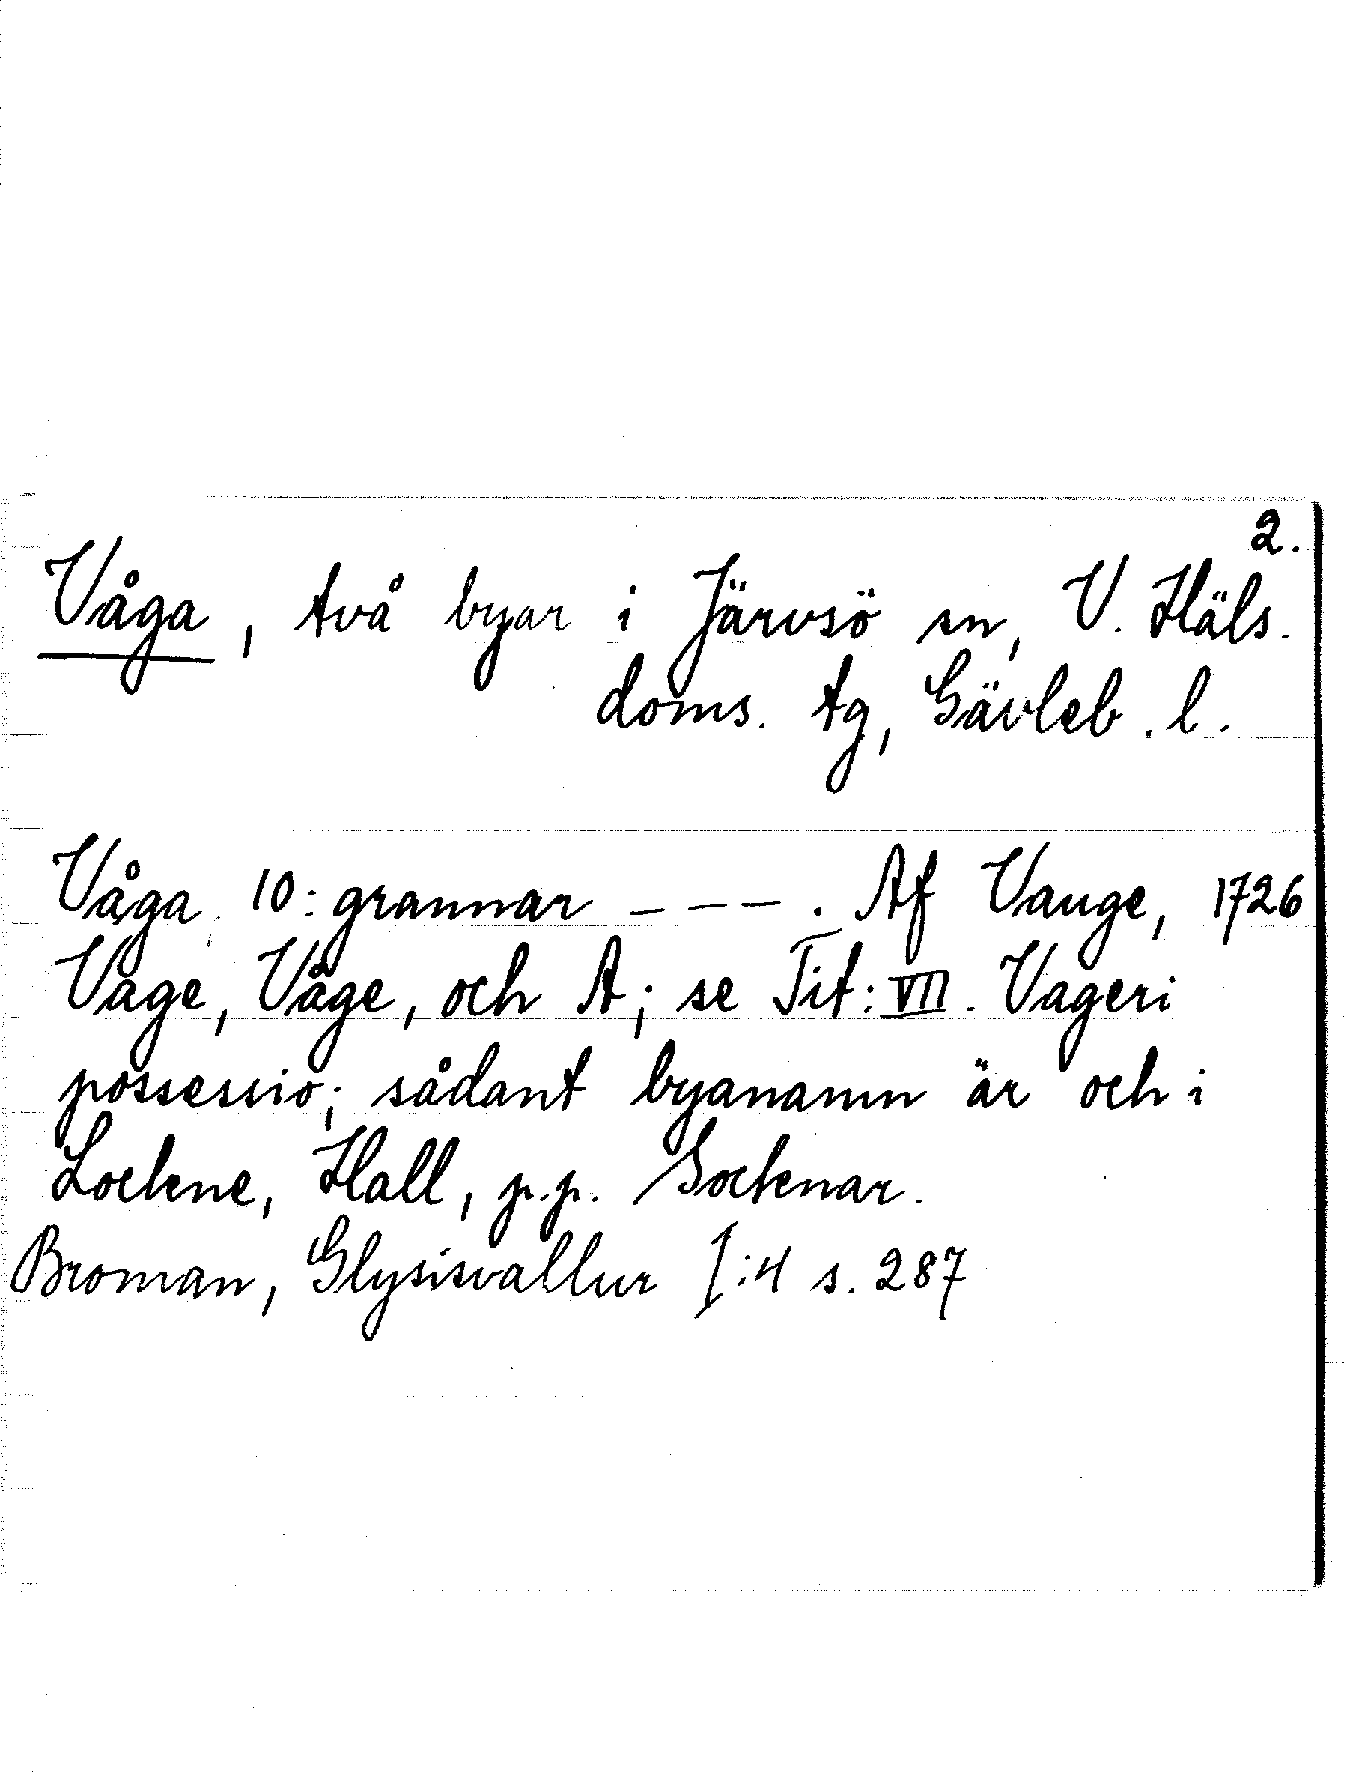 2.
Våga, två byar i Järvsö sn, V. Häls.
doms. tg, Gävleb. l.
Våga, 10: grannar ---. Af Vauge, 1726
Vage, Våge, och A; se Tit: VII. Vageri
possessio; sådant byanamn är och i
Lockne, Hall, p.p. Socknar.
Broman, Glysisvallur I:4 s. 287